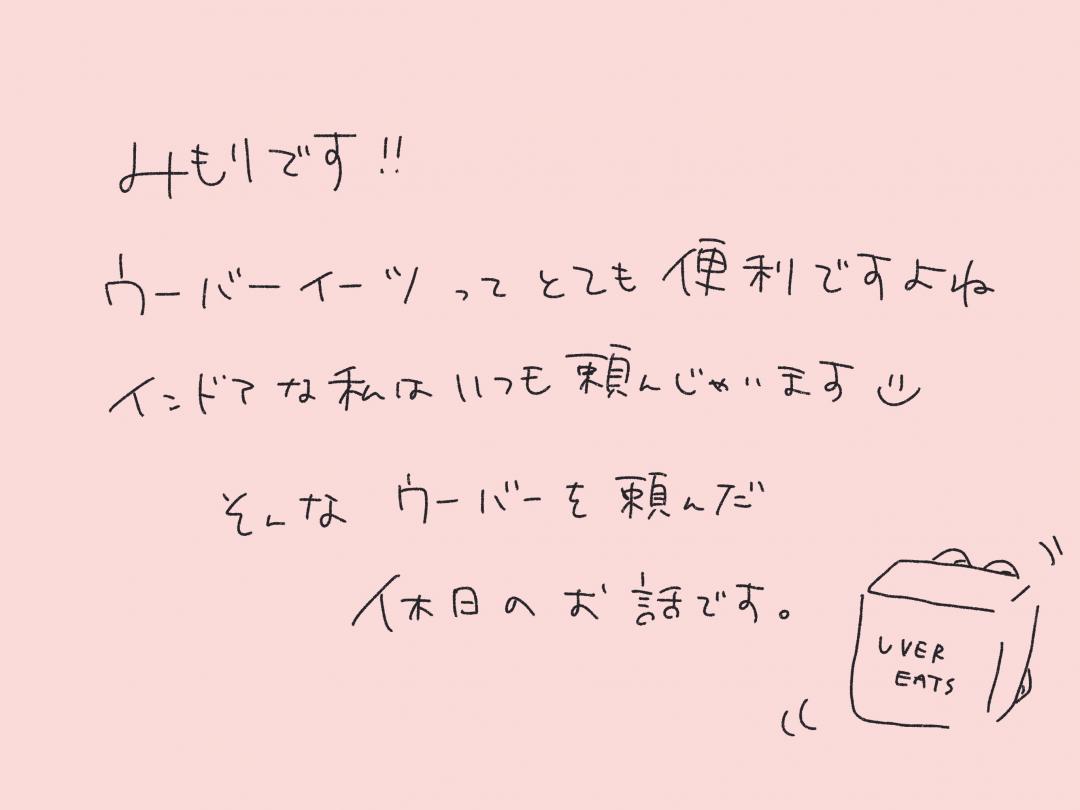 みもりです!!
ウーバーイーツってとても便利ですよね
インドアな私はいつも頼んじゃいます
そんなウーバーを頼んだ
休日のお話です。
UVER
EATS